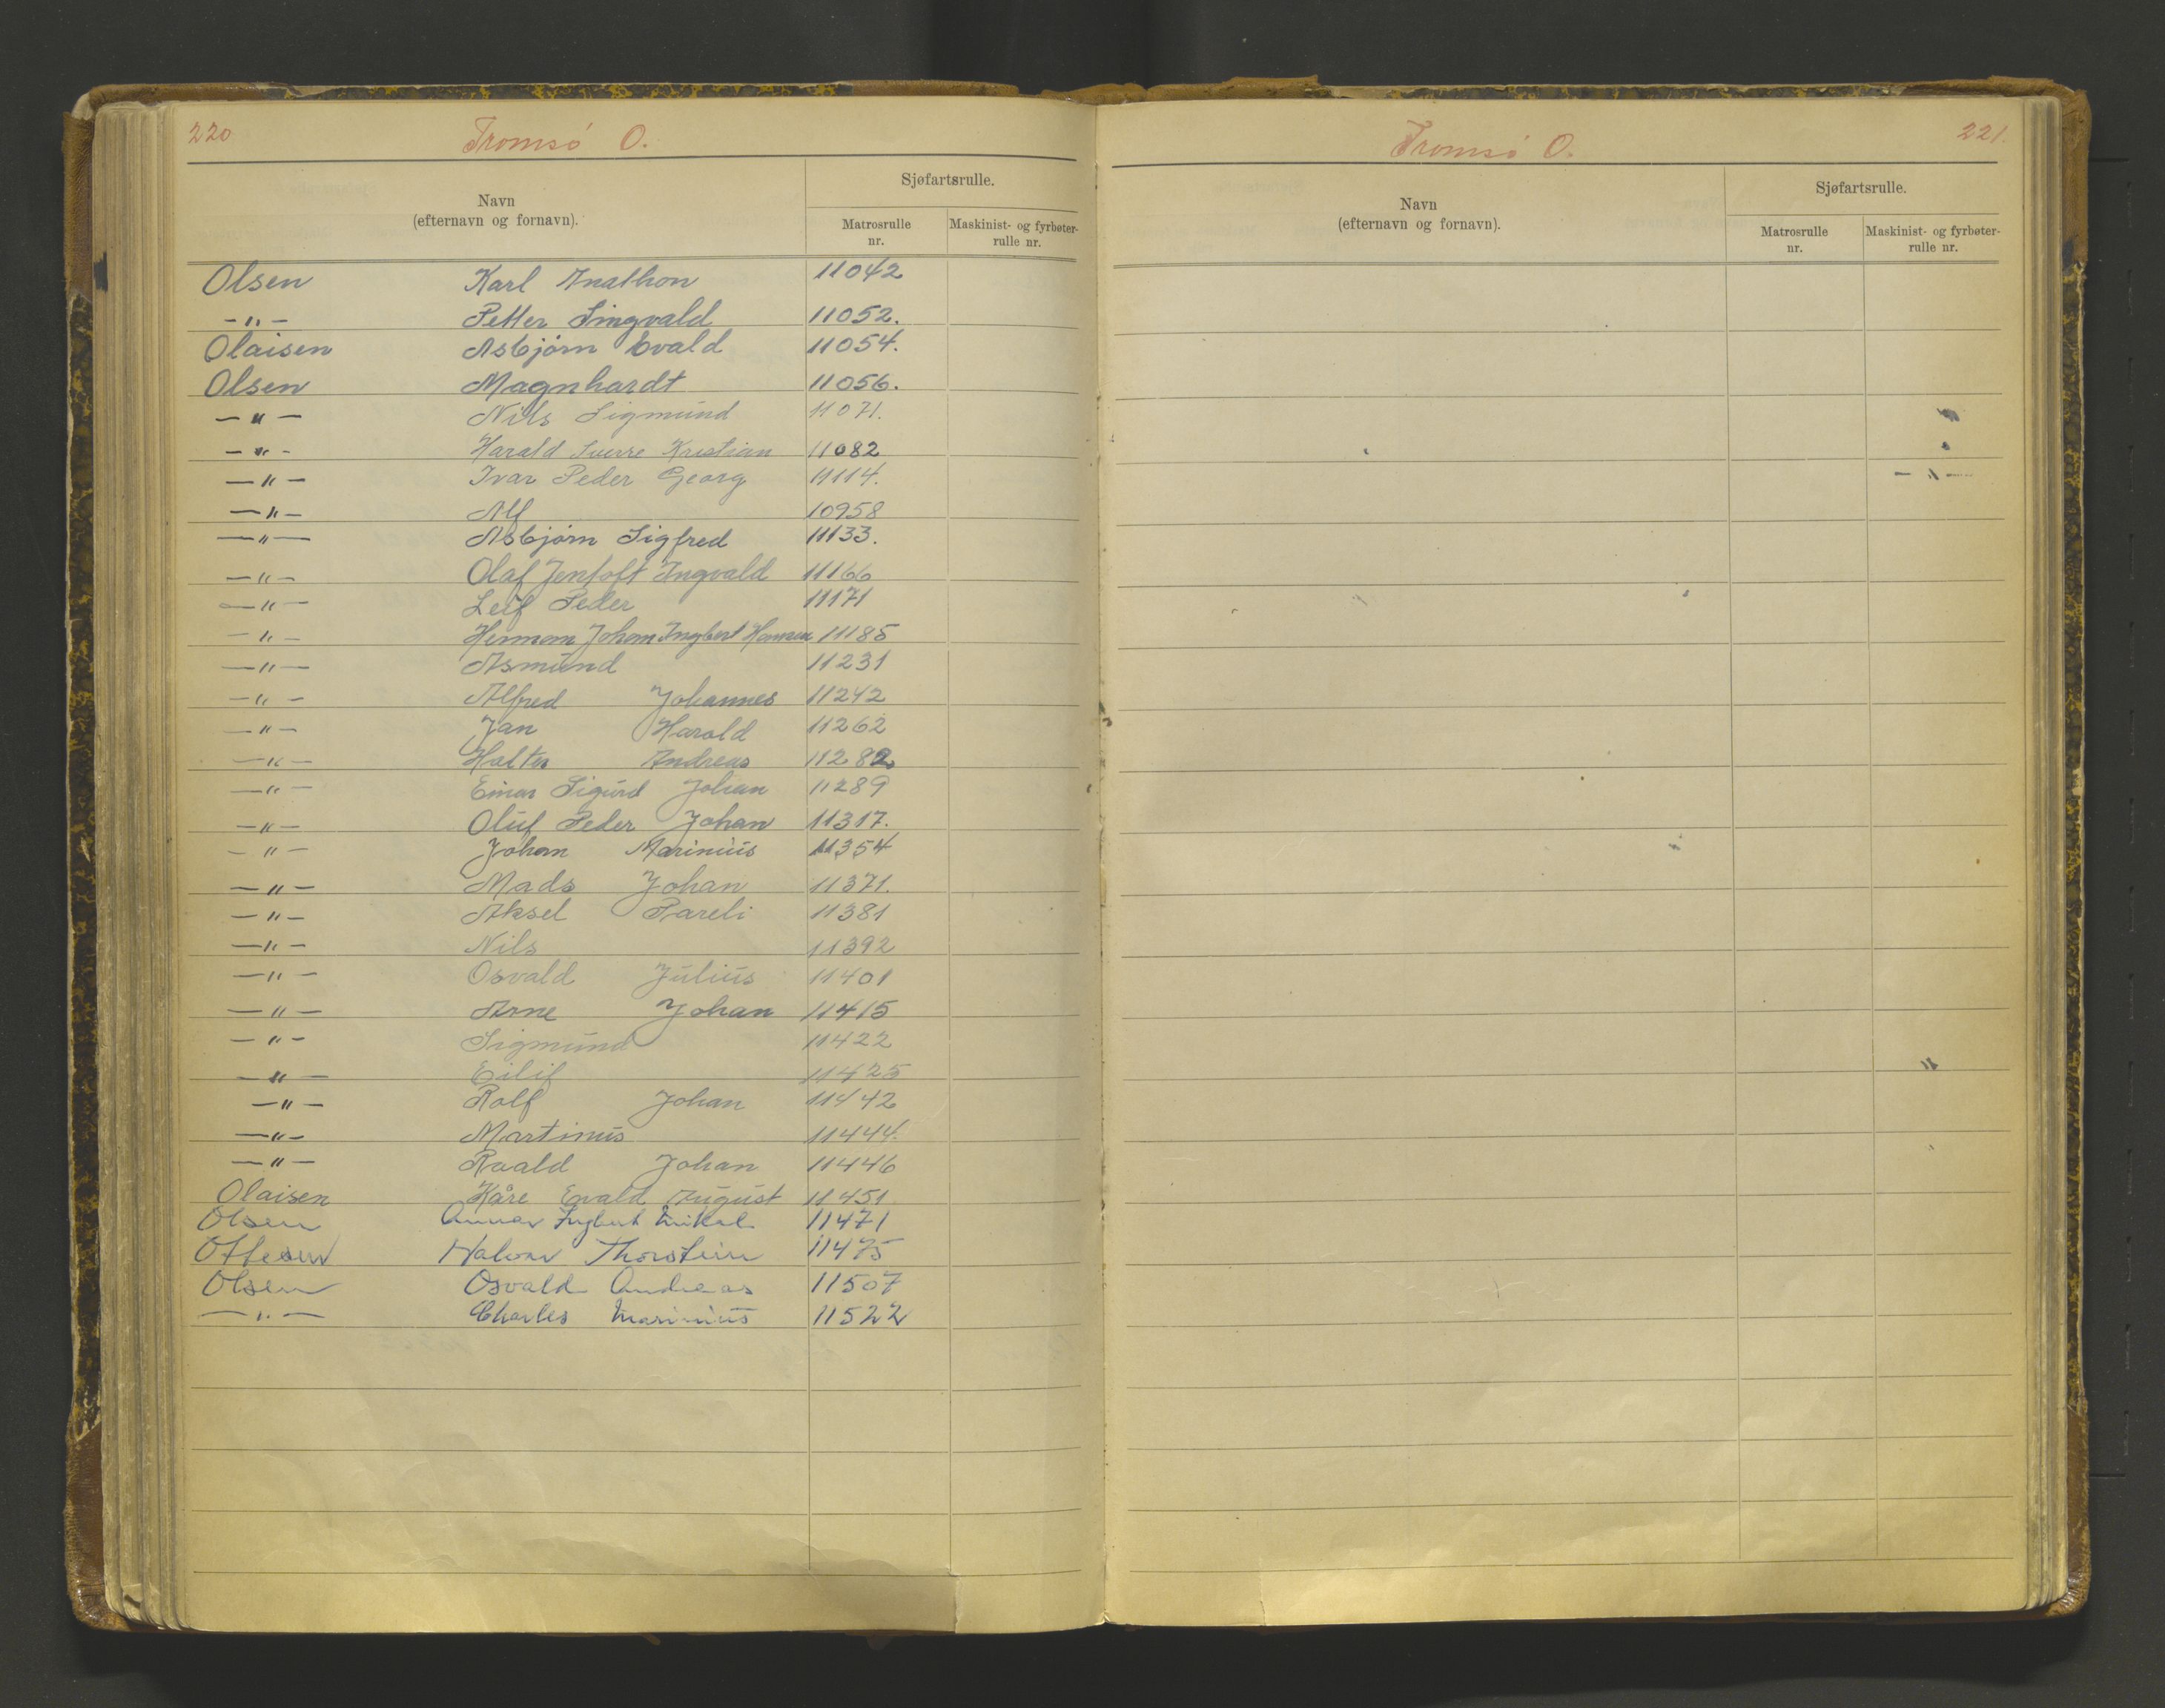 220
Tromsø O.
Navn
(efternavn og fornavn).
Sjøfartsrulle.
Matrosrulle
nr.
Maskinist- og fyrbøter-
rulle nr.
Olsen Karl Anathon 11042
-"- Petter Singvald 11052.
Olaisen Asbjørn Evald 11054.
Olsen Magnhardt 11056.
-"- Nils Sigmund 11071.
-"- Harald Sverre Kristian 11082
-"- Ivar Peder Georg 11114.
-"- Alf 10958
-"- Asbjørn Sigfred 11133.
-"- Olaf Jentoft Ingvald 11166
-"- Leif Peder 11171
-"- Herman Johan Ingbert Hansen 11185
-"- Asmund 11231
-"- Alfred Johannes 11242
-"- Jan Harald 11262
-"- Halter Andreas 11282
-"- Einar Sigurd Johan 11289
-"- Oluf Peder Johan 11317.
-"- Johan Marinius 11354
-"- Mads Johan 11371.
-"- Aksel Pareli 11381
-"- Nils 11392
-"- Osvald Julius 11401
-"- Arne Johan 11415
-"- Sigmund 11422
-"- Eilif 11425
-"- Rolf Johan 11442
-"- Martinus 11444.
-"- Roald Johan 11446
Olaisen Kåre Evald August 11451
Olsen Ingbert Mikal 11471
Ottesen Halvar Thorstein 11475
Olsen Osvald Andreas 11507
-"- Charles Marinius 11522
Tromsø O.
221.
Navn
(efternavn og fornavn).
Sjøfartsrulle.
Matrosrulle
nr.
Maskinist- og fyrbøter-
rulle nr.
-"-
"